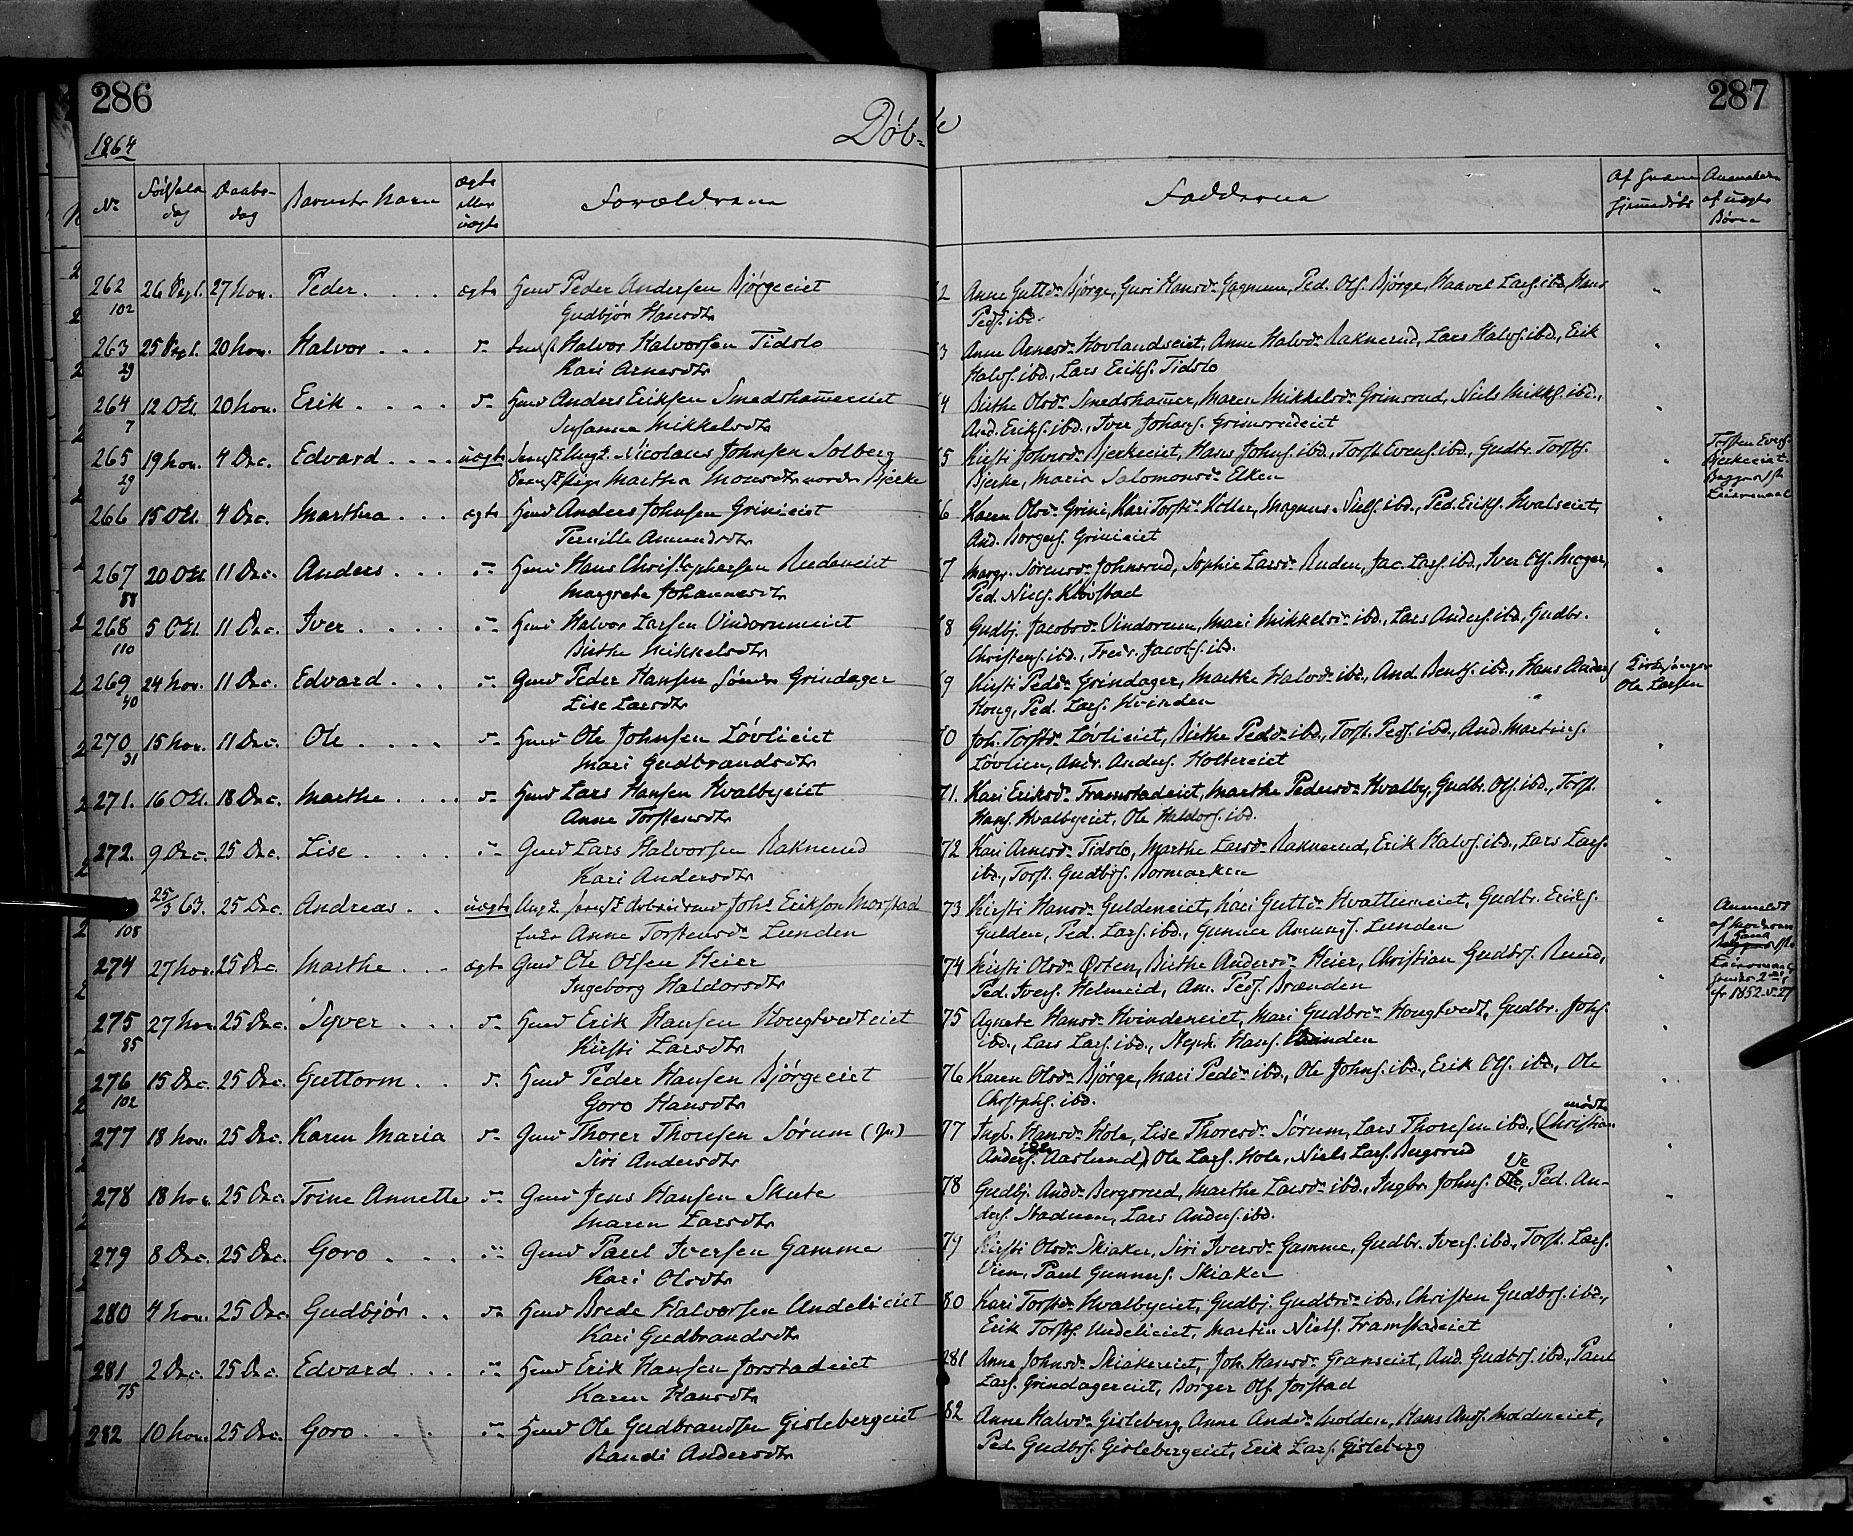 286
287
1864
Døb-
te
No
Fødsels
dag
Daabs-
dag
Barnets Navn
ægte
eller
uægte
Forældrene
Fadderne
Af hvem
hjemmedøbt
Anmeldere
af uægte
Børn
262 26 Sept. 27 Nov. Peder ægte Huusmd Peder Andersen Bjørgeeiet
102 Gudbjør Hansdtr
Anne Guttds Bjørge, Guri Hansds Ped. Ols. Bjørge, Haavel Lars. ibd, Hans
Peds. ibd.
263 25 Sept. 20 Nov. Halvor Halvor Halvorsen Tidslo
29 Kari Arnesdtr
Anne Arnesds Hovlandseiet, Anne Halvds Raknerud, Lars Halvs. ibd., Erik
Halvs. ibd., Lars Eriks. Tidslo
264 12 Oct. 20 Nov. Erik Anders Eriksen Smedshammereiet
7 Susanna Mikkelsdtr
Birthe Olsds Smedshammer, Maren Mikkelsds Grimsrud, Niels Mikks. ibd.,
And. Eriks. ibd., Iver Johans. Grimsrudeiet
265 19 Nov. 4 Dec. Edvard uægte Nicolaus Johnsen Solberg
29 Martha Monsdtr nordre Bjerke
Kirsti Johnsds Bjerkeeiet, Hans Johns. ibd., Torst. Evens. ibd., Gudbr. Torsts.
Bjerke, Maria Salomonsds Elken
Torsten Evens.
Bjerkeeiet.
Begges 1ste
Leiermaal
266 15 Oct. 4 Dec. Marthea ægte Anders Johnsen Grinieiet
Pernille Amundsdtr
Karen Olsds Grini, Kari Torstds Koller, Magnus Niels. ibd., Ped. Eriks. Hvalseiet,
And. Borgers. Grinieiet
267 20 Oct. 11 Dec. Anders Hans Christophersen Rudeneiet
88 Margrete Johannesdtr
Margr. Sørensds Johnsrud, Sophie Larsds Ruden, Jac. Lars. ibd., Iver Ols. Moger,
Ped. Niels. Klovstad
268 5 Oct. 11 Dec. Iver Halvor Larsen Vindorumeiet
110 Birthe Mikkelsdtr
Gudbj. Jacobsds Vindorum, Mari Mikkelsds ibd., Lars Anders. ibd, Gudbr.
Christens. ibd., Fredr. Jacobs. ibd.
269 24 Nov. 11 Dec. Edvard Peder Hansen søndre Grindager
40 Lise Larsdtr
Kirsti Pedsds Grindager, Marthe Halvds ibd., And. Bents. ibd., Hans Anders
Houg, Ped. Lars. Hvinden
Kirkesanger
Ole Larsen
270 15 Nov. 11 Dec. Ole Ole Johnsen Løvlieiet
31 Mari Gudbrandsdtr
Joh. Torstds Løvlieiet, Birthe Pedds ibd., Torst. Peds. ibd., And. Martins.
Løvlien, Andr. Anders. Holtereiet
271. 16 Oct. 18 Dec. Marthe Lars Hansen Hvalbyeiet
Anne Torstensdtr
Kari Eriksds Framstadeiet, Marthe Pedersds Hvalby, Gudbr. Ols. ibd., Torst.
Hans. Hvalbyeiet, Ole Haldors. ibd.
272. 9 Dec. 25 Dec. Lise Lars Halvorsen Raknerud
Kari Andersdtr
Kari Arnesds Tidslo, Marthe Larsds Raknerud, Erik Halvs. ibd., Lars Lars.
ibd., Torst. Gudbrs. Bormarken
25/3 63. 25 Dec. Andreas uægte Johs Erikson Morstad
108 Anne Torstensds Lunden
73 Kirsti Hansds Guldeneiet, Kari Guttds Gudbr. Eriks.
Gulden, Ped. Lars. ibd., Gunnar Amunds. Lunden
Anmeldt
af Moderen
274 27 Nov. 25 Dec. Marthe ægte Ole Olsen Heier
Ingeborg Haldorsdtr
74 Kirsti Olsds Østen, Birthe Andersds Heier, Christian Gudbrs. Ruud,
Ped. Ivers. Helmeid, Am. Peds. Brænden
275 27 Nov. 25 Dec. Syver Erik Hansen Hougtvedteiet
85 Kirsti Larsdtr
75 Agnete Hansds Hvindeneiet, Mari Gudbrds Hougtvedt, Gudbr. Johs.
ibd., Lars Lars. ibd., Neph. Hans. Hvinden
276 15 Dec. 25 Dec. Guttorm Peder Hansen Bjørgeeiet
102 Goro Hansdtr
76 Karen Olsds Bjørge, Mari Pedds ibd., Ole Johns. ibd., Erik Ols. ibd., Ole
Chrstphs. ibd.
277 18 Nov. 25 Dec. Karen Maria Thorer Thoresen Sørum
Siri Andersdtr
77 Ingb. Hansds Hole, Lise Thoresds Sørum, Lars Thoresen ibd., (Christian
mødte
ikke
Anders. Aaslund) Ole Lars. Hole, Niels Lars. Bergsrud
278 18 Nov. 25 Dec. Trine Annette Jens Hansen Skute
Maren Larsdtr
78 Gudbj. Andds Bergsrud, Marthe Larsds ibd., Ingbr. Johns. Ve, Ped. An-
ders. Stadum, Lars Anders. ibd.
279 8 Dec. 25 Dec. Goro Paul Iversen Gamme
Kari Olsdtr
79 Kirsti Olsds Skiaker, Siri Iversds Gamme, Gudbr. Ivers. ibd., Torst. Lars.
Vien, Paul Gunners. Skiaker
280 4 Nov. 25 Dec. Gudbjør Brede Halvorsen Undelieiet
Kari Gudbrandsdtr
80 Kari Torstds Hvalbyeiet, Gudbj. Gudbrds ibd., Christen Gudbrs. ibd.,
Erik Torsts. Undelieiet, Martin Niels. Framstadeiet
281 2 Dec. 25 Dec. Edvard Erik Hansen Jorstadeiet
75 Karen Hansdtr
281 Anne Johnsds Skiakereiet, Joh. Hansds Granseiet, And. Gudbrs. ibd., Paul
Lars. Grindagereiet, Borger Ols. Jorstad
282 10 Nov. 25 Dec. Goro Ole Gudbrandsen Gislebergeiet
Randi Andersdtr
82 Anne Halvds Gisleberg, Anne Andds Molden, Hans Ands. Moldeneiet,
Ped. Gudbrs. Gislebergeiet, Erik Lars. Gisleberg